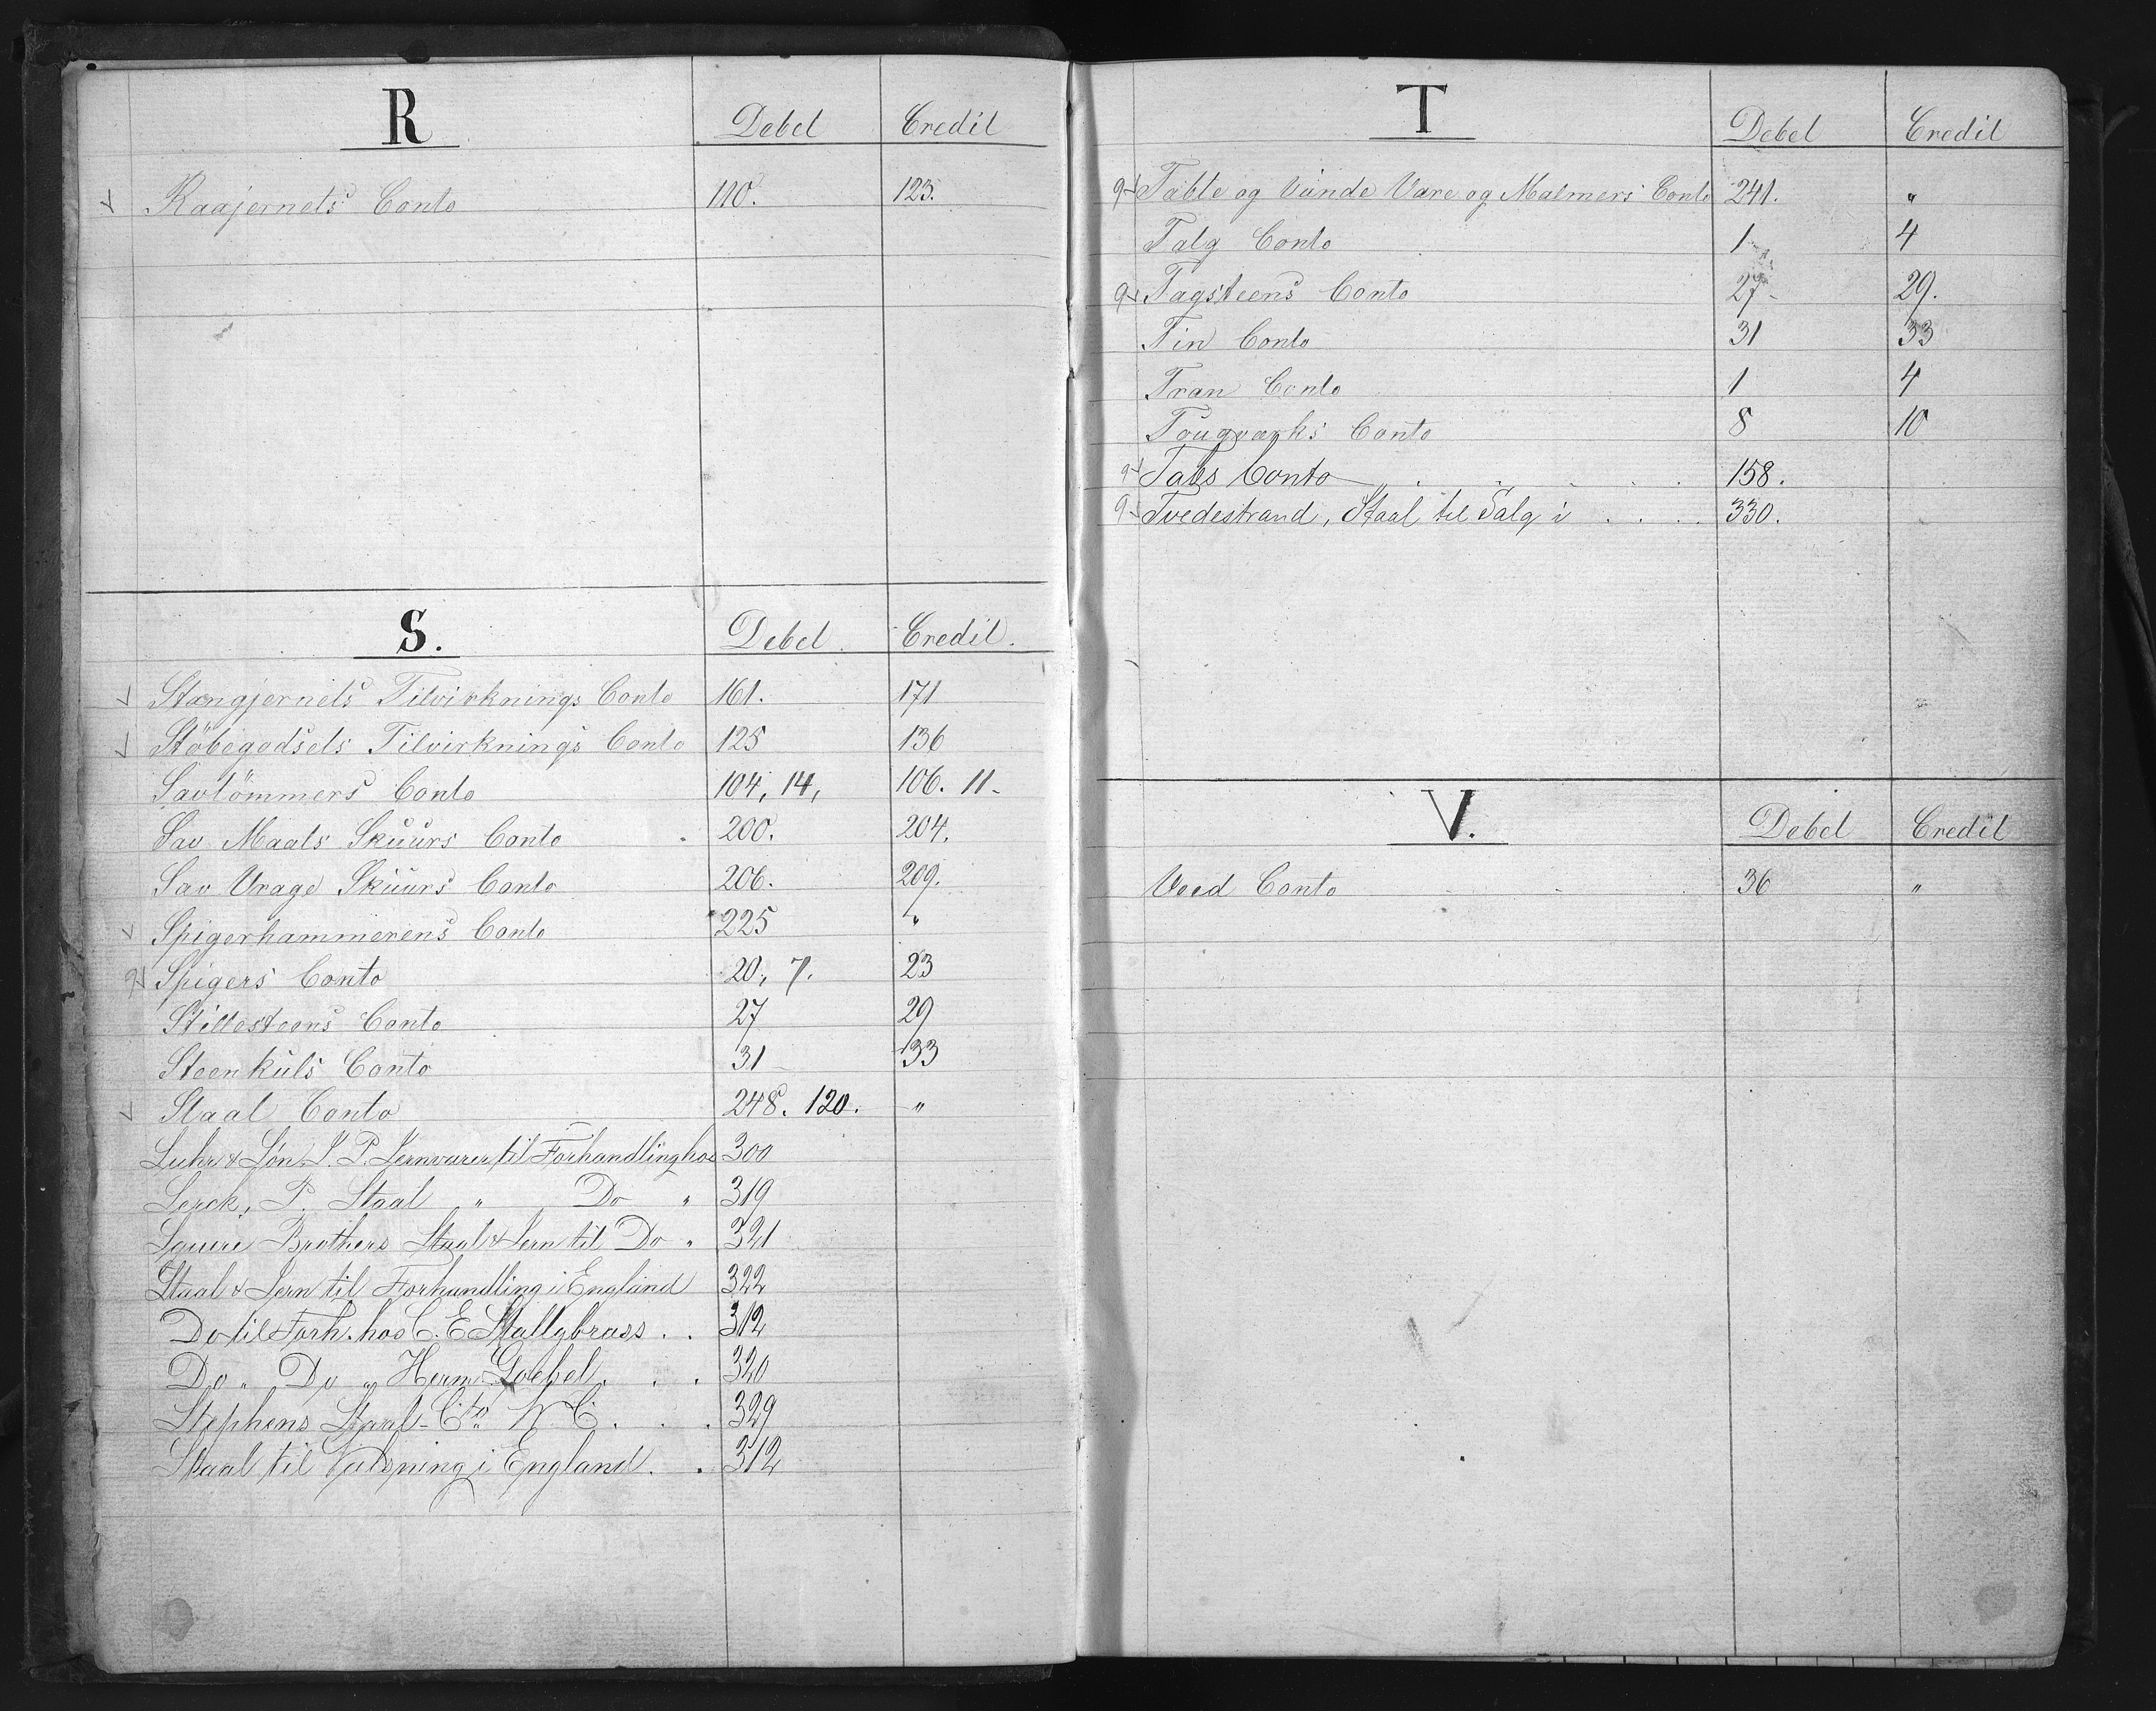 R Debet Credit
Raajernets Conto 110. 123.
S. Debet Credit.
Stangjernets Tilvirknings Conto 161. 171
Stöbegodsets Tilvirknings Conto 125 136
Savtömmers Conto 104, 14, 106. 11.
Sav Maals Skuurs Conto 200. 204.
Sav Vrage Skuurs Conto 206. 209.
Spigerhammerens Conto 225 "
Spigers Conto 20, 7. 23
Stillesteens Conto 27 29
Steenkuls Conto 31 33
Staal Conto 248. 120. "
Suhr & Søn. J. P. Jernvarer til Forhandling hos 300
Serck, P. Staal " Do " 319
Squire Brothers Staal & Jern til Do " 321
Staal & Jern til Forhandling i England 322
Do til Forh. hos C. E Stallybrass . . 312
Do " Do " Herm. Goebel . . . 320
Stephens Staal-Cto N. C. . . . 329
Staal til Valsning i England . . 312
T Debet Credit
Tabte og Vunde Vare og Malmers Conto 241. "
Talg Conto 1 4
Tagsteens Conto 27 29.
Tin Conto 31 33
Tran Conto 1 4
Tougværks Conto 8 10
Tabs Conto 158.
Tvedestrand, Staal til Salg i . . . . 330.
V. Debet Credit
Veed Conto 36 "